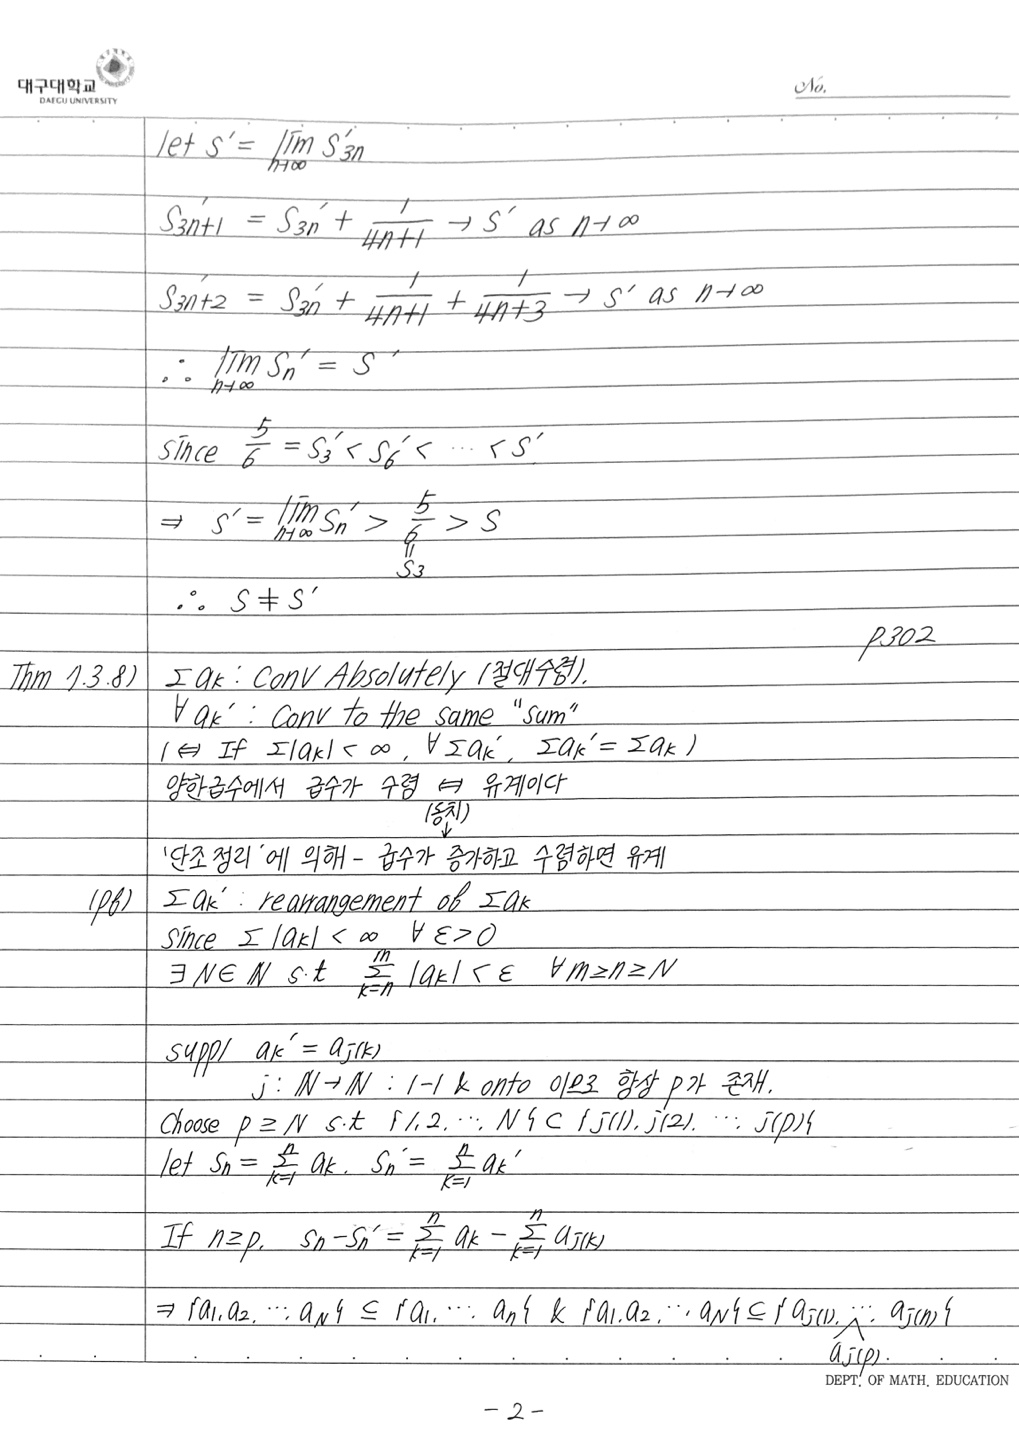 대구대학교
DAEGU UNIVERSITY
No.
let S′ = lim n→∞ S′3n
S′3n+1 = S′3n + 1/(4n+1) → S′ as n→∞
S′3n+2 = S′3n + 1/(4n+1) + 1/(4n+3) → S′ as n→∞
∴ lim n→∞ Sn′ = S′
since 5/6 = S3′ < S6′ < ⋯ < S′
⇒ S′ = lim n→∞ Sn′ > 5/6 > S
॥
S3
∴ S ≠ S′
p302
Thm 7.3.8) Σak : Conv Absolutely (절대수렴).
∀ ak′ : Conv to the same "sum"
(⇔ If Σ|ak| < ∞, ∀Σak′, Σak′ = Σak)
양항급수에서 급수가 수렴 ⇔ 유계이다
(동치)
↓
'단조정리'에 의해 - 급수가 증가하고 수렴하면 유계
(pf) Σak′ : rearrangement of Σak
Since Σ|ak| < ∞ ∀ε>0
∃N∈ℕ s.t Σ k=n m |ak| < ε ∀m≥n≥N
supp/ ak′ = aj(k)
j : ℕ→ℕ : 1-1 & onto 이므로 항상 p가 존재.
Choose p ≥ N s.t {1, 2, ⋯, N} ⊂ {j(1), j(2), ⋯ j(p)}
let Sn = Σ k=1 n ak, Sn′ = Σ k=1 n ak′
If n≥p, Sn-Sn′ = Σ k=1 n ak - Σ k=1 n aj(k)
⇒ {a1, a2, ⋯ aN} ⊆ {a1, ⋯ an} & {a1, a2, ⋯ aN} ⊆ {aj(1), ⋯, aj(n)}
aj(p).
DEPT. OF MATH. EDUCATION
- 2 -